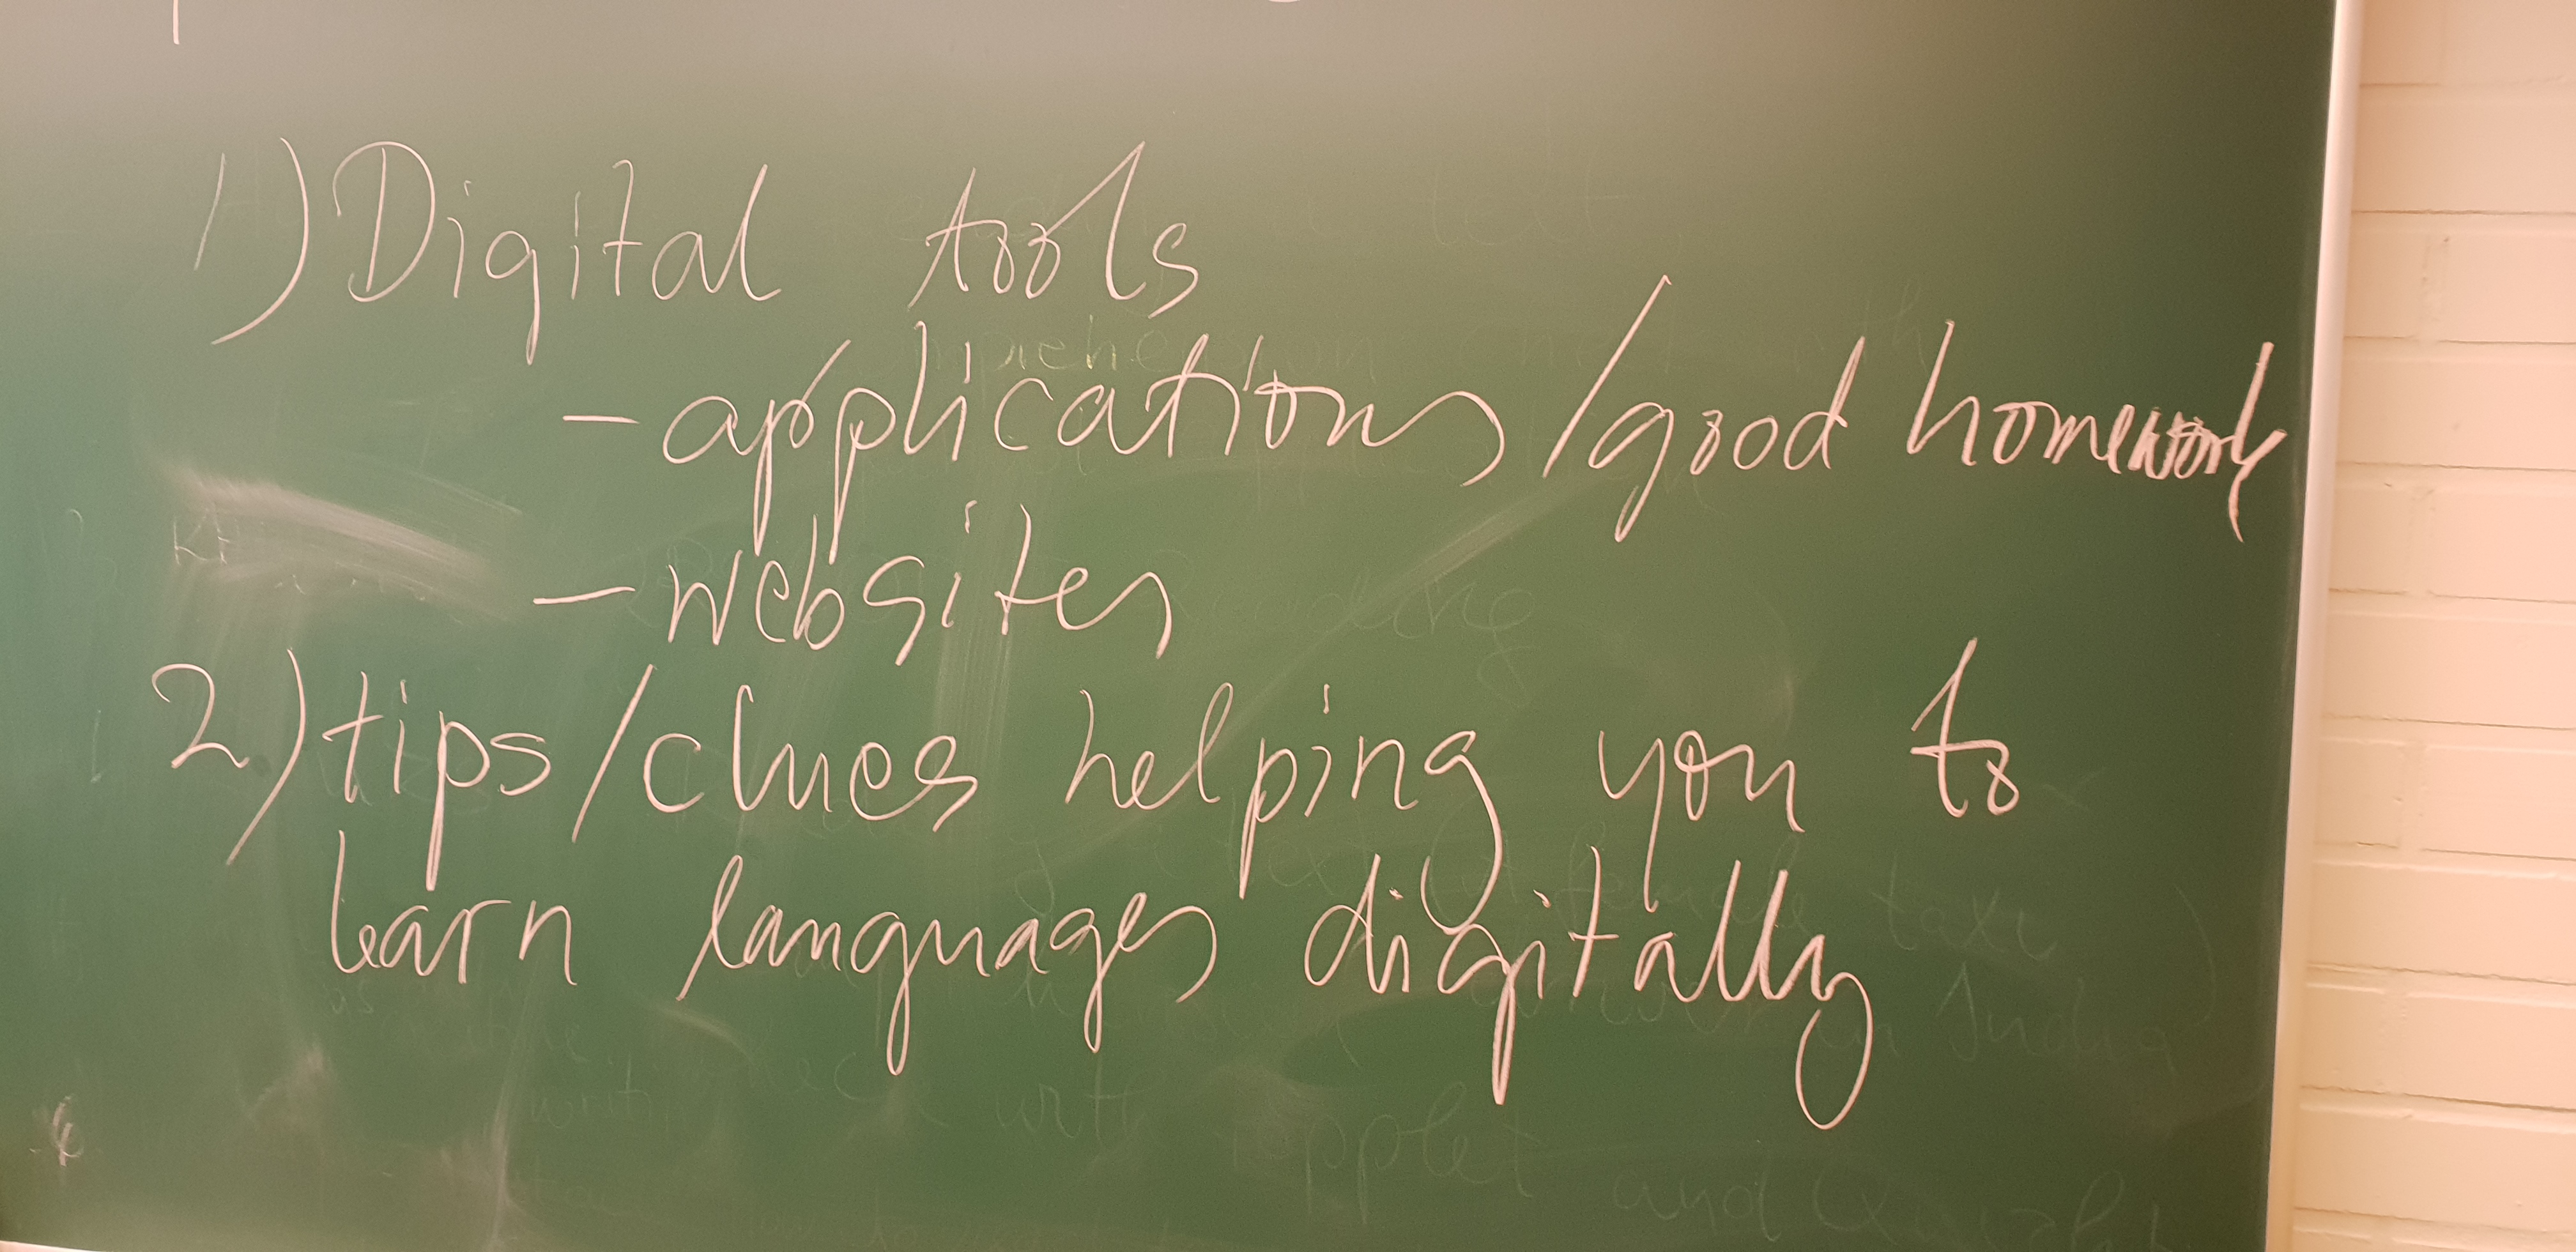 1) Digital tools
- applications / good homework
- websites
2) tips / clues helping you to
learn languages digitally